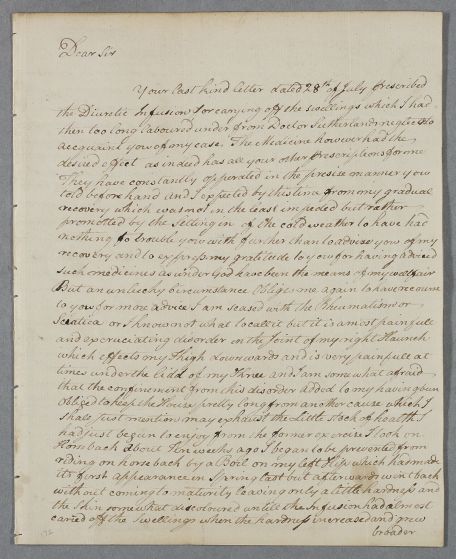 Dear Sir
Your Last kind letter dated 28th of July Prescribed
the Diuretic Infusion for carying off the swellings which I had
then too long laboured under from Doctor Sutherlands neglect to
acquaint you of my case. The Medicine however had the
desired effect as indeed has all your other Prescriptions for me
They have constantly opperated in the precise manner you
told beforehand and I expected by this time from my gradual
recovery which was not in the least impeded but rather
promotted by the setting in of the cold weather to have had
nothing to trouble you with further than to advise you of my
recovery and to express my gratitude to you for having adviced
such medicines as under God has been the means of my wellfair
But an unlucky circumstance Obliges me again to have recourse
to you for more advice I am seased with the Rheumatism or
Sciatica or I know not what to call it but it is a most painfull
and excruciating disorder in the Joint of my right Haunch
which effects my Thigh downwards and is very painfull at
times under the of my Knee and I am somewhat afraid
that the confinement from this disorder added to my having been
Obliged to keep the House pretty long from another cause which I
shall just mention may exhaust the little stock of health I
had just begun to enjoy from the former exercise I took on
Horseback about Ten weeks ago I began to be prevented from
reding on horseback by a Boil on my left Hip which had made
its first appearance in Spring last but afterwards went back
without coming to maturity leaving only a little hardness and
the skin somewhat discoloured untill the Infusion had almost
caried off the swellings when the hardness increased and grew
broader